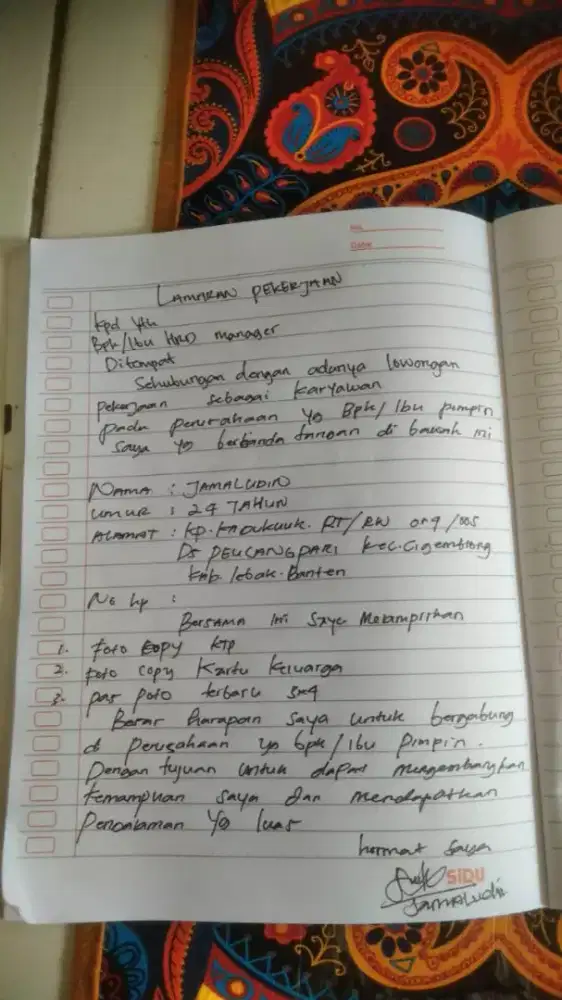 No.
Date
LAMARAN PEKERJAAN
Kpd Yth
Bpk/Ibu HRD manager
Ditempat
Sehubungan dengan adanya lowongan
pekerjaan sebagai karyawan
pada perusahaan yg Bpk/Ibu pimpin
saya yg bertanda tangan di bawah ini
NAMA : JAMALUDIN
UMUR : 24 TAHUN
ALAMAT : KP. KADUKUUK. RT/RW /005
DS PEUCANGPARI Kec. Cigemblong
Kab. lebak. Banten
No hp :
Bersama ini saya Melampirkan
1. Foto copy KTP
2. Foto copy Kartu Keluarga
3. pas poto terbaru 3x4
Besar Harapan saya untuk bergabung
di perusahaan yg bpk/Ibu pimpin.
Dengan tujuan untuk dapat mengembangkan
kemampuan saya dan mendapatkan
Pengalaman yg luas
hormat saya
SIDU
Jamaludin